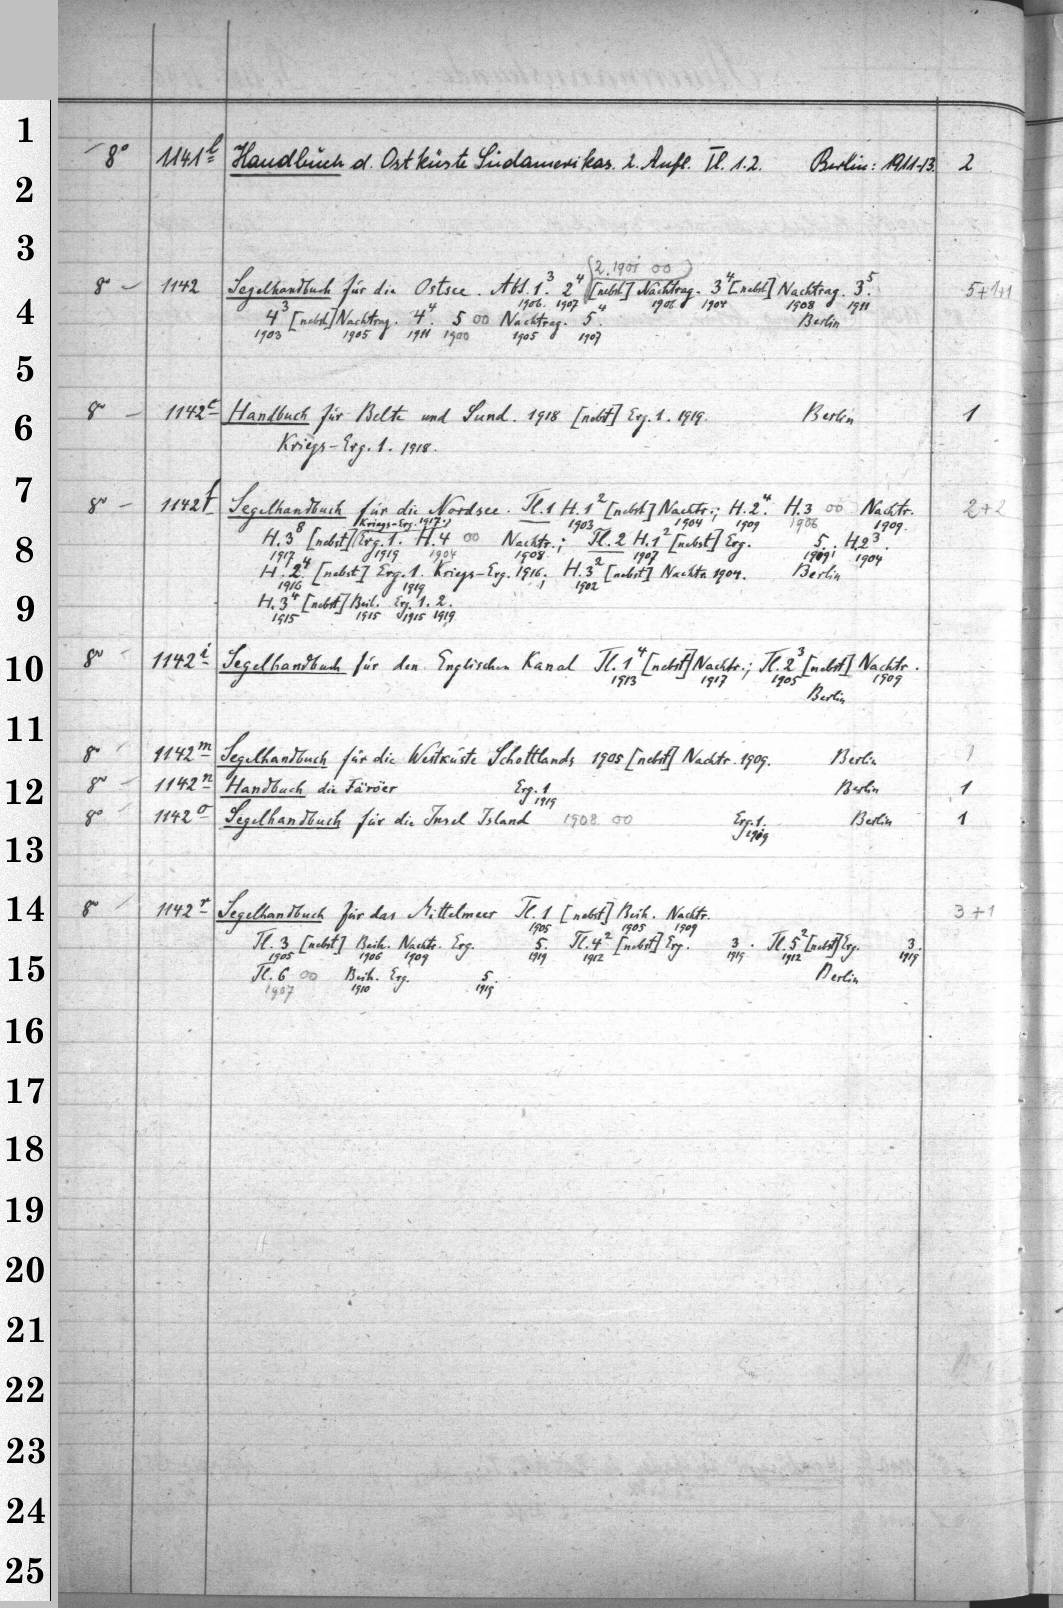 1
8° 1141 l Handbuch d. Ostküste Südamerikas. 2. Aufl. Tl. 1.2. Berlin: 1911-13. 2
2
3
(2. 1901 00)
8° 1142 Segelhandbuch für die Ostsee. Abt. 1.³ 2⁴ [nebst] Nachtrag. 3⁴ [nebst] Nachtrag. 3⁵. 5+1+1
1906. 1907 1906 1904 1908 1911
4
4³ [nebst] Nachtrag. 4⁴. 5 00 Nachtrag. 5⁴. Berlin
1903 1905 1911 1900 1905 1907
5
6
8° 1142 Handbuch für Belte und Sund. 1918 [nebst] Erg. 1. 1919. Berlin 1
Kriegs-Erg. 1. 1918.
7
8° 1142 f Segelhandbuch für die Nordsee. Tl. 1 H. 1² [nebst] Nachtr.; H. 2⁴. H. 3 00 Nachtr. 2+2
(Kriegs-Erg. 1917.) 1903 1904 1909 1906 1909.
8
H. 3⁸ [nebst] Erg. 1. H. 4 00 Nachtr.; Tl. 2 H. 1² [nebst] Erg. 5. H. 2³.
1917 1919 1904 1908 1907 1919; 1904
H. 2⁴ [nebst] Erg. 1. Kriegs-Erg. 1916; H. 3² [nebst] Nachtr. 1904. Berlin
1916 1919 1902
9
H. 3⁴ [nebst] Beih. Erg. 1. 2.
1915 1915 1915 1919
10
8° 1142 i Segelhandbuch für den Englischen Kanal Tl. 1⁴ [nebst] Nachtr.; Tl. 2³ [nebst] Nachtr.
1913 1917 1905 1909
Berlin
11
8° 1142 m Segelhandbuch für die Westküste Schottlands 1905 [nebst] Nachtr. 1909. Berlin 1
12
8° 1142 n Handbuch die Färöer Erg. 1 Berlin 1
1919
8° 1142 o Segelhandbuch für die Insel Island 1908 00 Erg. 1. Berlin 1
1919
13
14
8° 1142 r Segelhandbuch für das Mittelmeer Tl. 1 [nebst] Beih. Nachtr. 3+1
1905 1905 1909
Tl. 3 [nebst] Beih. Nachtr. Erg. 5. Tl. 4² [nebst] Erg. 3. Tl. 5² [nebst] Erg. 3.
1905 1906 1909 1919 1912 1919 1912 1919
15
Tl. 6 00 Beih. Erg. 5. Berlin
1907 1910 1919
16
17
18
19
20
21
22
23
24
25